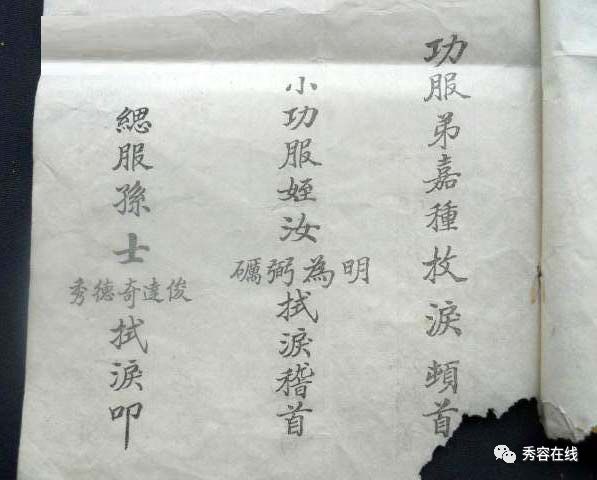 功服弟嘉種抆淚頓首
小功服姪汝
明為弼礪
拭淚稽首
緦服孫士
俊達奇德秀
拭淚叩
秀容在线